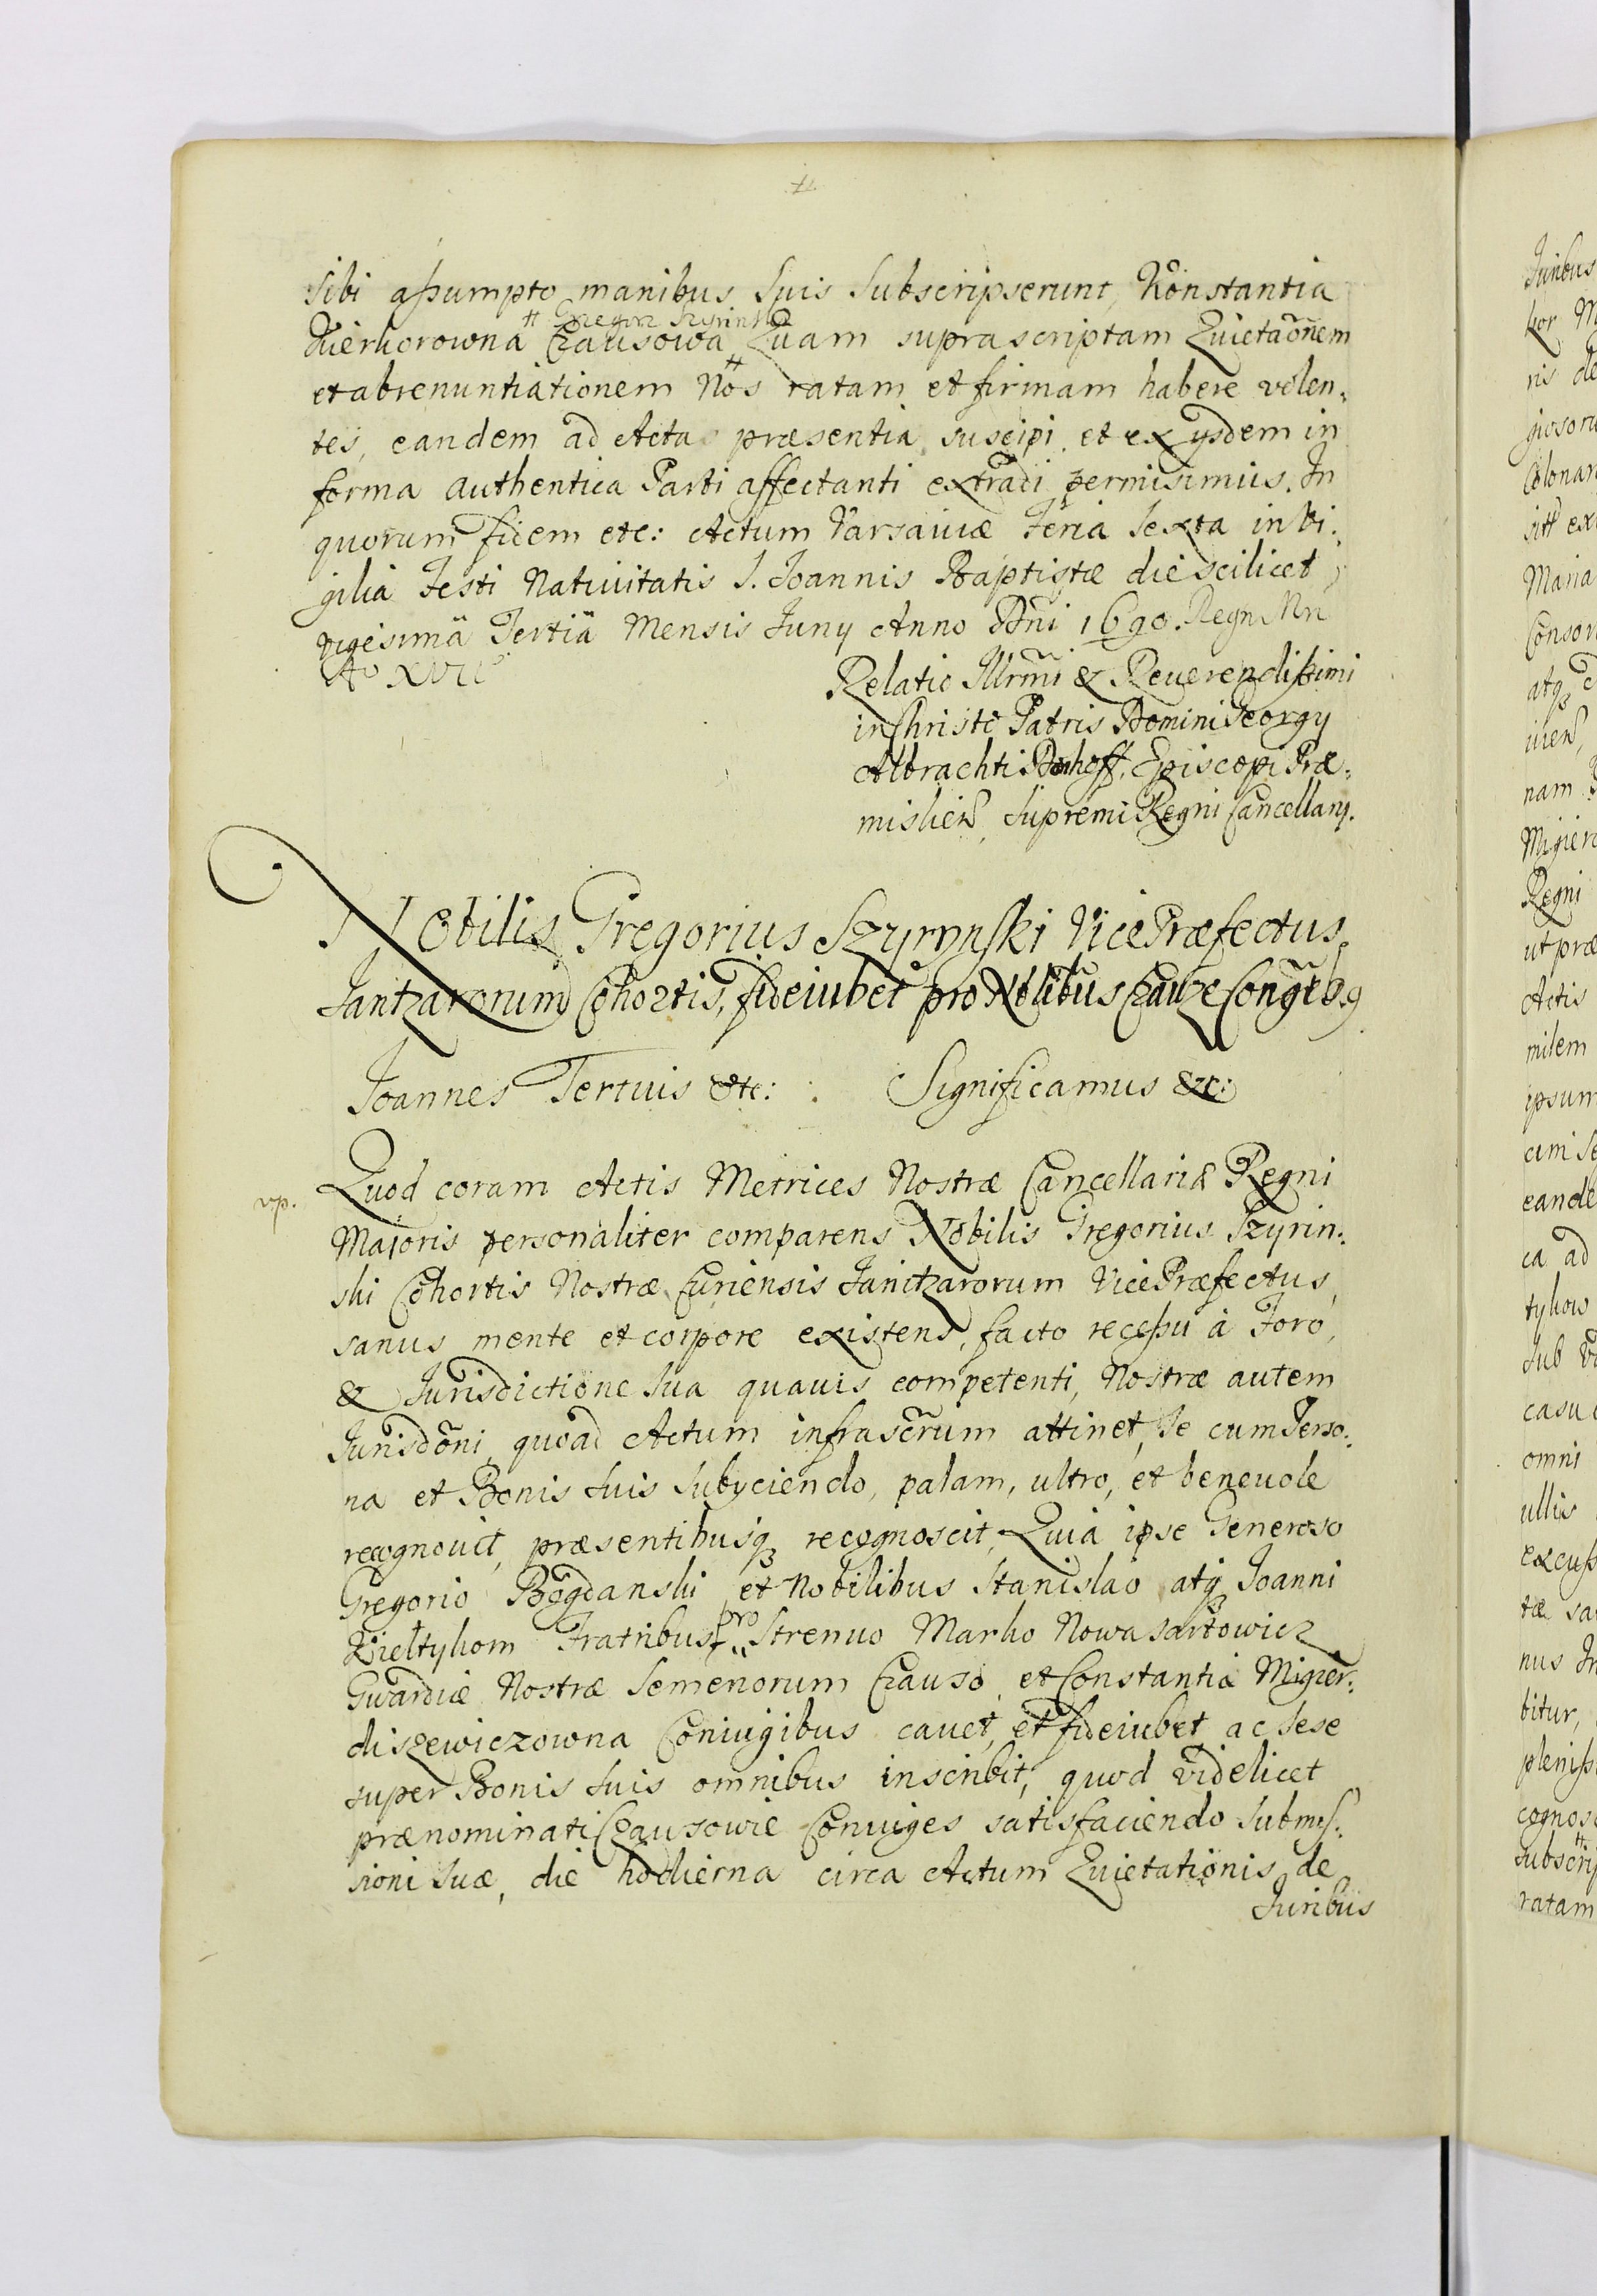 sibi assumpto manibus suis subscripserunt, Konstantia
# Gregorz Szyrinski
Kierkorowna Czausowa Quam suprascriptam Quietaõnem
et abrenuntiationem Nos ratam et firmam habere volen:
tes, eandem ad Acta præsentia suscipi et ex ysdem in
forma authentica Parti affectanti extradi permisimus. In
quorum fidem etc: Actum Varsaviæ Feria Sexta in Vi:
gilia Festi Nativitatis S. Joannis Baptistæ die scilicet
vigesimâ Tertiâ Mensis Juny Anno Dñi 1690. Regn Nri
Ao XVII
Relatio Illrmi & Reverendissimi
in Christo Patris Domini Georgy
Albrachti Denhoff, Episcopi Præ:
mislien, Supremi Regni Cancellary.
Nobilis Gregorius Szyrynski Vice Præfectus
Jantzarorum Cohortis, fideiubet pro Nobilibus Czausze Coniugibus
Joannes Tertius etc: Significamus &c:
vp.
Quod coram Actis Metrices Nostræ Cancellariæ Regni
Majoris personaliter comparens Nobilis Gregorius Szyrin:
ski Cohortis Nostræ Curiensis Janitzarorum Vice Præfectus,
sanus mente et corpore existens, facto recessu à Foro,
& Jurisdictione sua quavis competenti, Nostræ autem
Jurisdõni quoad Actum infrascrum attinet, se cum Perso:
na et Bonis suis subyciendo, palam, ultro, et benevole
recognovit, præsentibusq recognoscit, Quia ipse Generoso
Gregorio Bogdanski et Nobilibus Stanislao atq Joanni
Kieltykom Fratribus, pro Strenuo Marko Nowasartowicz
Gwardiæ Nostræ Semenorum Czauso, et Constantia Migier:
diszewiczowna Coniugibus cavet, et fideiubet, ac sese
super Bonis suis omnibus inscribit, quod videlicet
prænominati Czausowie Coniuges satisfaciendo submis:
sioni suæ, die hodierna circa Actum Quietationis de
Juribus